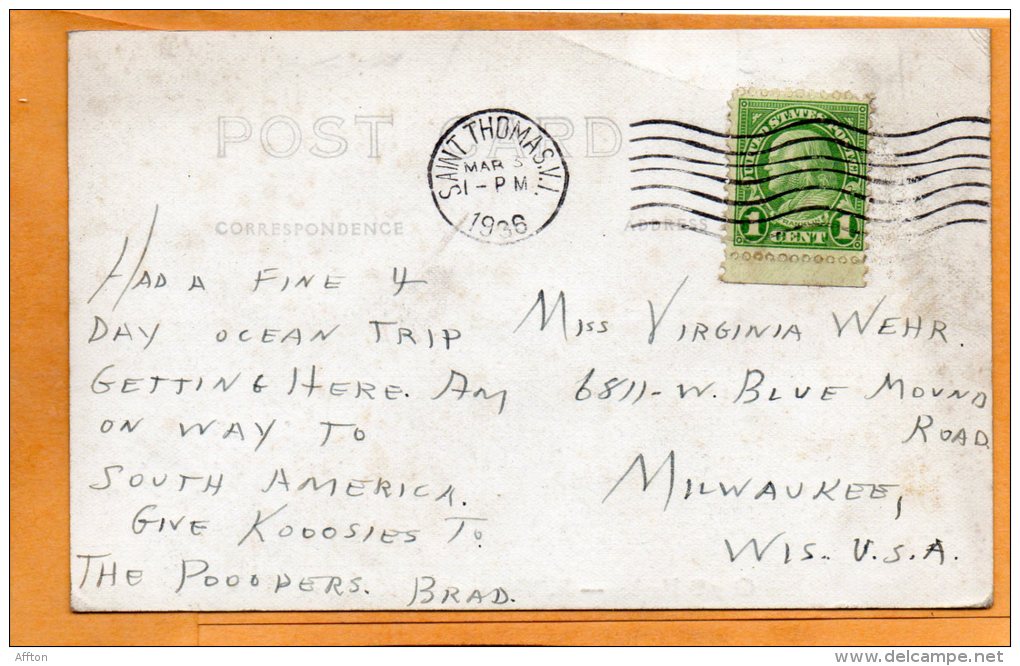 POST CARD
SAINT THOMAS, V.I.
MAR 5
1-PM
1936
UNITED STATES POSTAGE
1 CENT 1
CORRESPONDENCE
ADDRESS
HAD A FINE 4
DAY OCEAN TRIP
GETTING HERE. AM
ON WAY TO
SOUTH AMERICA.
GIVE KOOOSIES TO
THE POOOPERS. BRAD.
MISS VIRGINIA WEHR.
6811-W. BLUE MOUND
ROAD
MILWAUKEE,
WIS. U.S.A.
Affton
www.delcampe.net